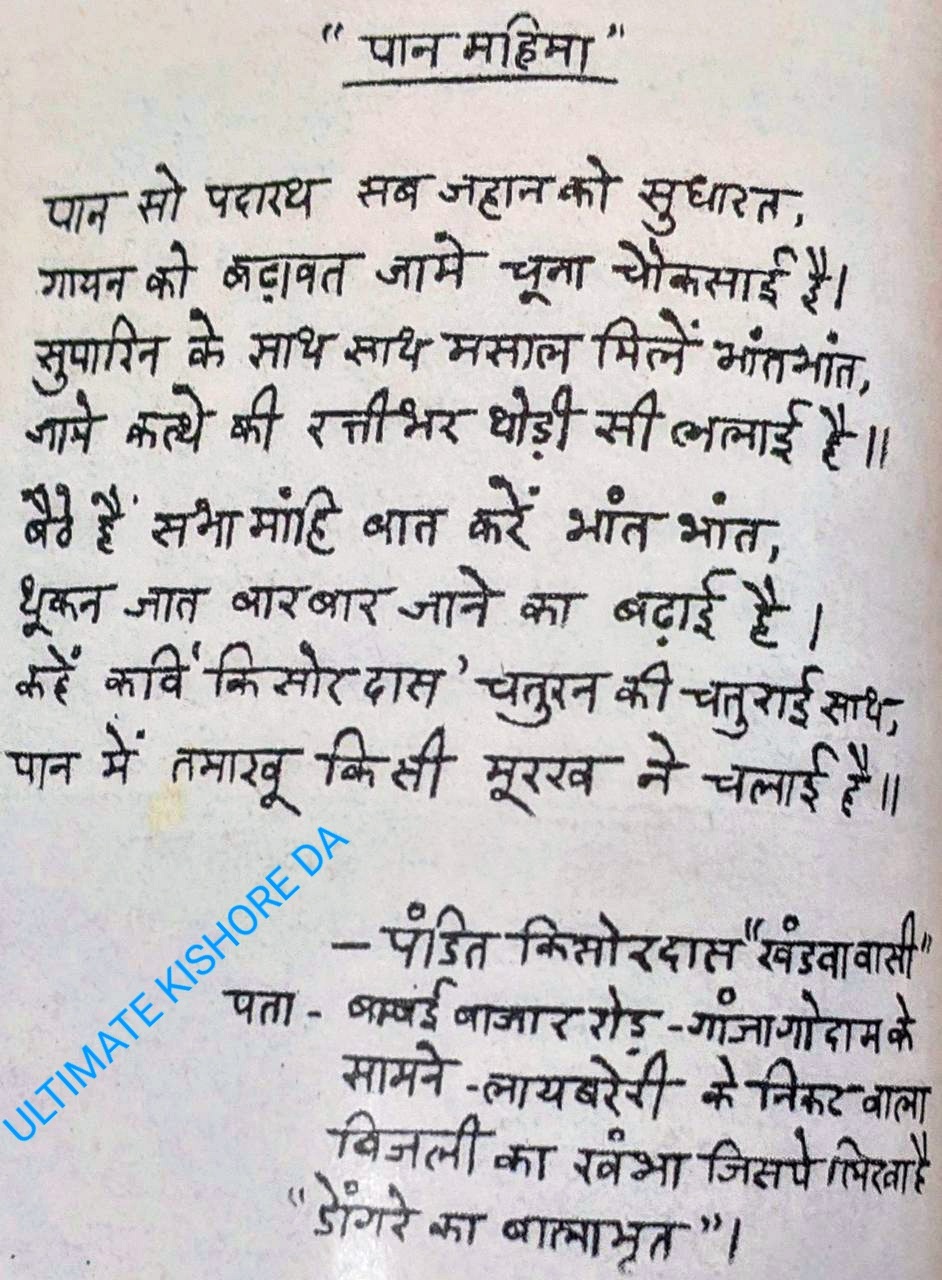 "पान महिमा"
पान सो पदारथ सब जहान को सुधारत,
गायन को बढ़ावत जामे चूना चौकसाई है।
सुपारिन के साथ साथ मसाल मिलें भांत भांत,
जामे कत्थे की रत्तीभर थोड़ी सी ललाई है॥
बैठे हैं सभा मांहि बात करें भांत भांत,
थूकन जात बारबार जाने का बढ़ाई है।
कहें कवि 'किसोरदास' चतुरन की चतुराई साथ,
पान में तमाखू किसी मूरख ने चलाई है॥
- पंडित किसोरदास "खंडवावासी"
पता - बाम्बई बाजार रोड़ - गांजागोदाम के
सामने - लायबरेरी के निकट वाला
बिजली का खंभा जिसपे लिखा है
"डोंगरे का बालामृत"।
ULTIMATE KISHORE DA